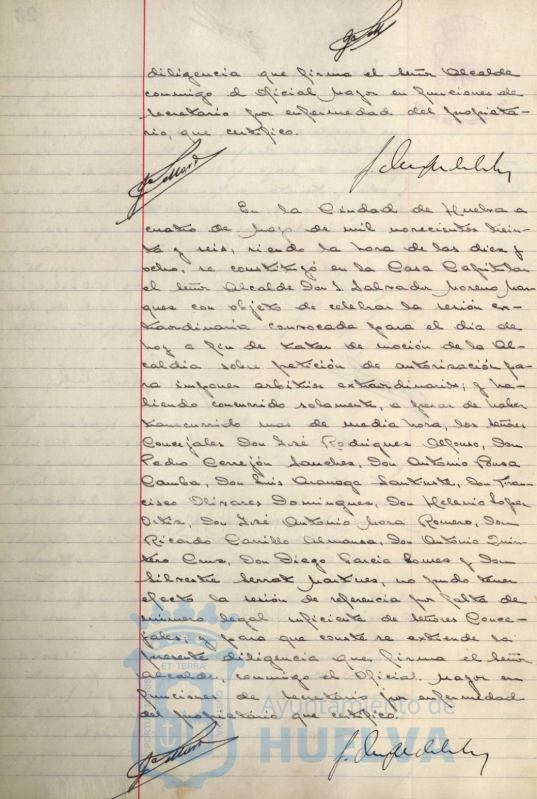 diligencia que firma el Señor Alcalde
conmigo el Oficial Mayor en funciones de
Secretario por enfermedad del propieta-
rio, que certifico.
En la Ciudad de Huelva a
cuatro de Mayo de mil novecientos trein-
ta y seis, siendo la hora de las diez y
ocho, se constituyó en la Casa Capitular
el Señor Alcalde Don S. Salvador Moreno Mar-
quez con objeto de celebrar la sesión ex-
traordinaria convocada para el día de
hoy a fin de tratar de moción de la Al-
caldía sobre petición de autorización pa-
ra imponer arbitrios extraordinarios; y ha-
biendo concurrido solamente, a pesar de haber
transcurrido mas de media hora, los señores
Concejales Don José Rodriguez Alfonso, Don
Pedro Cerrejón Sanchez, Don Antonio Pousa
Camba, Don Luis, Don Fran-
cisco Olivares Dominguez, Don Helenio Lopez
Ortiz, Don José Antonio Mora Romero, Don
Ricardo Carrillo Almansa, Don Antonio Quin-
tero Cruz, Don Diego Garcia Gomez y Don
Silvestre Serrat Martinez, no pudo tener
efecto la sesión de referencia por falta de
número legal suficiente de señores Conce-
jales; y para que conste se extiende la
presente diligencia que firma el Señor
Alcalde, conmigo el Oficial Mayor en
funciones de Secretario por enfermedad
del propietario que certifico.
Ayuntamiento de
HUELVA